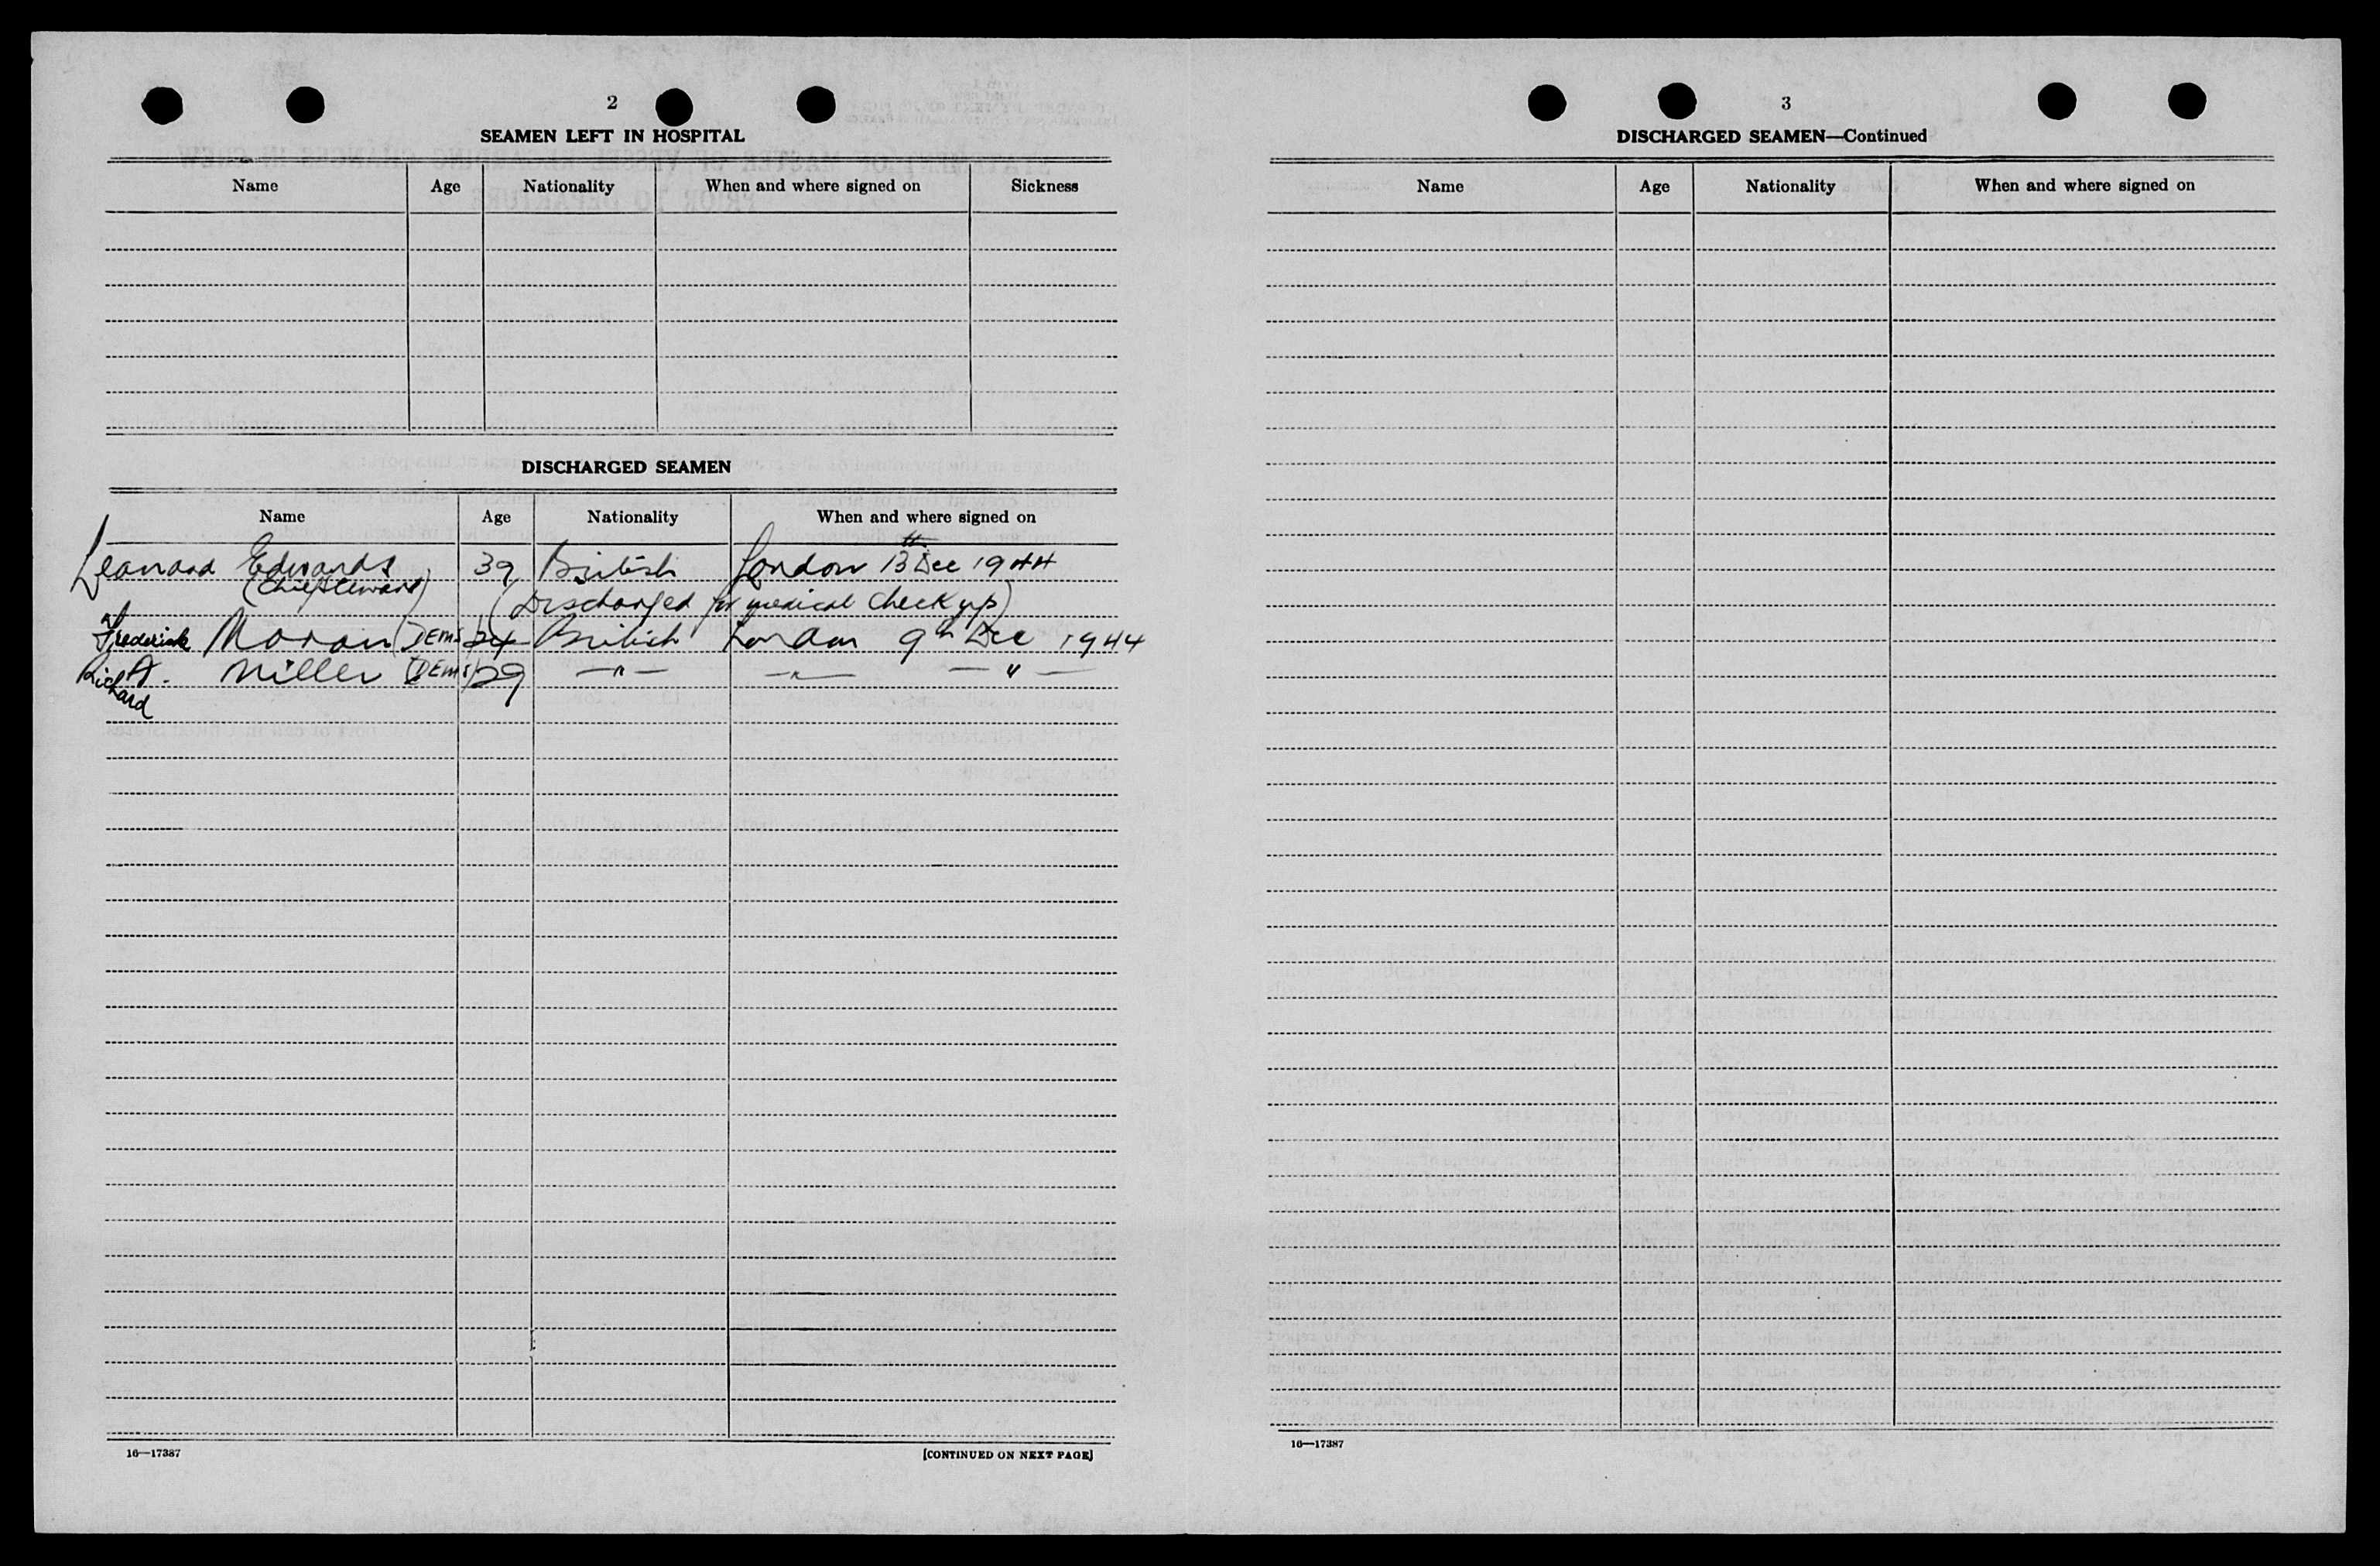 2
SEAMEN LEFT IN HOSPITAL
Name Age Nationality When and where signed on Sickness
DISCHARGED SEAMEN
Name Age Nationality When and where signed on
Leonard Edwards 39 British London 13th Dec 1944
(Chief Steward) (Discharged for medical check up)
Frederick Moran (DEMS) 24 British London 9th Dec 1944
A. Miller (DEMS) 29 —"— —"— —"—
Richard
16—17387 [CONTINUED ON NEXT PAGE]
3
DISCHARGED SEAMEN—Continued
Name Age Nationality When and where signed on
16—17387